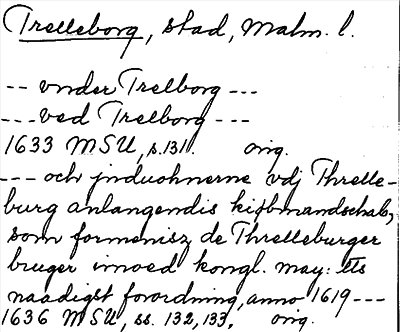 Trelleborg, stad, Malm. l.
-- vnder Trelborg ---
--- ved Trelborg ---
1633 MSU, s.131. orig.
--- och jnduohnerne vdj Threlle-
burg anlangendis kiøbmandschab,
som formenisz de Threlleburger
bruger imoed kongl. may: tts
naadigst forordning, anno 1619 ---
1636 MSU, ss. 132, 133, orig.